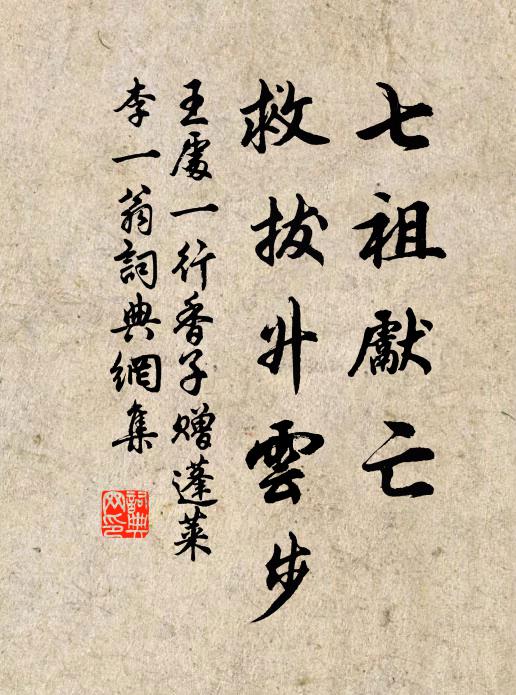 七祖獻亡
救拔升雲步
王處一行香子赠蓬莱
李一翁詞典網集
詞典
网印